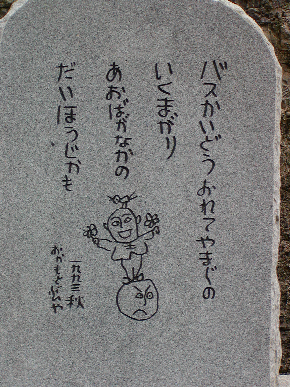 バスかいどうおれてやまじの
いくまがり
あおばがなかの
だいほうじかも
一九九三秋